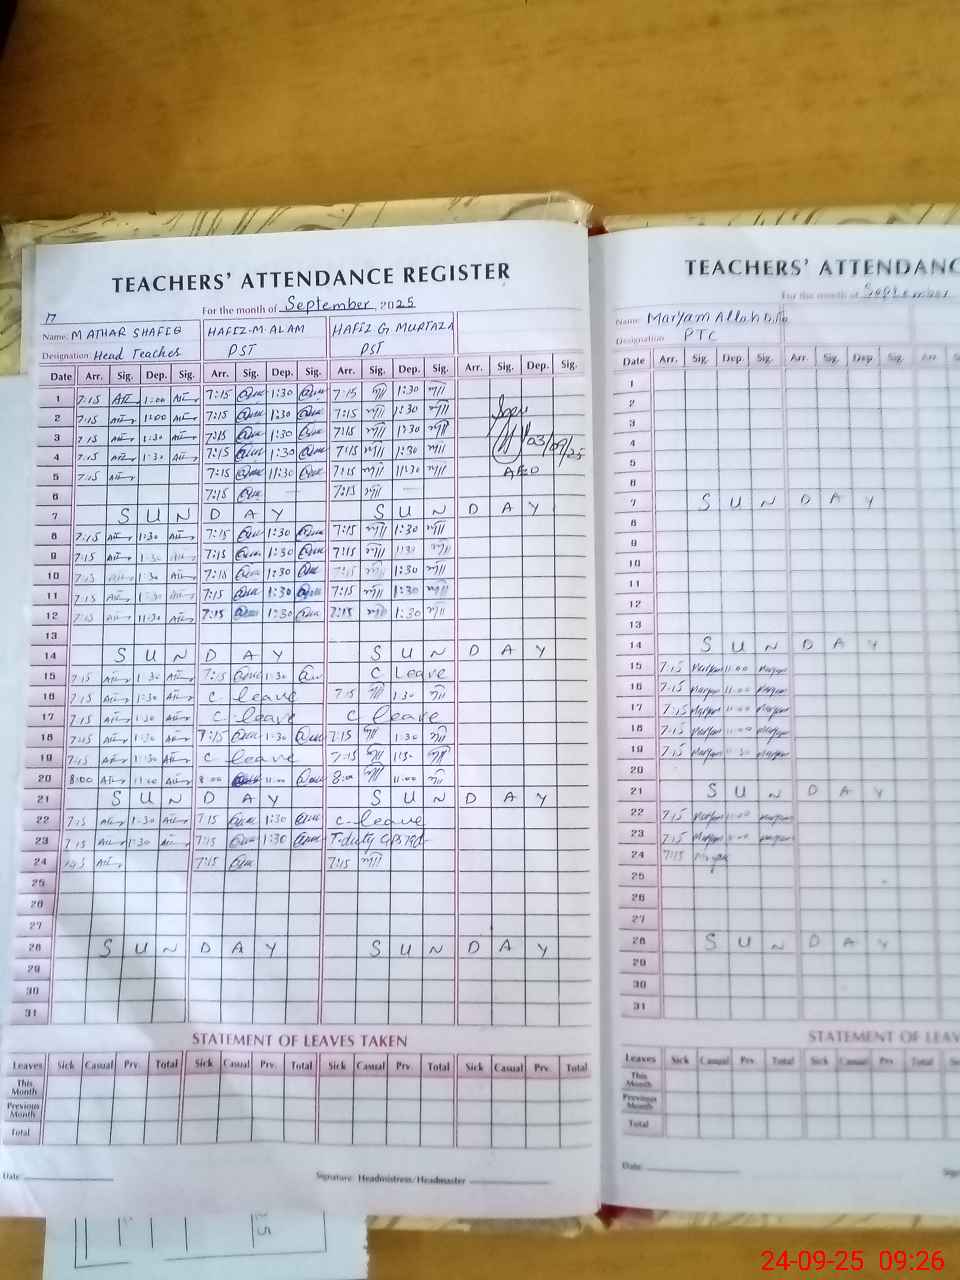 TEACHERS' ATTENDANCE REGISTER
For the month of September 2025
17
Name: M ATHAR SHAFIQ HAFIZ-M-ALAM HAFIZ G MURTAZA
Designation Head Teacher PST PST
Date Arr. Sig. Dep. Sig. Arr. Sig. Dep. Sig. Arr. Sig. Dep. Sig. Arr. Sig. Dep. Sig.
1 7:15 1:00 7:15 1:30 7:15 1:30
2 7:15 1:00 7:15 1:30 7:15 1:30
3 7:15 1:30 7:15 1:30 7:15 1:30 03/09/25
4 7:15 1:30 7:15 1:30 7:15 1:30
5 7:15 7:15 11:30 7:15 11:30 AEO
6 7:15 — 7:15 —
7 S U N D A Y S U N D A Y
8 7:15 1:30 7:15 1:30 7:15 1:30
9 7:15 1:30 7:15 1:30 7:15 1:30
10 7:15 1:30 7:15 1:30 7:15 1:30
11 7:15 1:30 7:15 1:30 7:15 1:30
12 7:15 11:30 7:15 1:30 7:15 1:30
13
14 S U N D A Y S U N D A Y
15 7:15 1:30 7:15 1:30 C Leave
16 7:15 1:30 C. leave 7:15 1:30
17 7:15 1:30 C. leave C leave
18 7:15 1:30 7:15 1:30 7:15 1:30
19 7:15 1:30 C leave 7:15 1:30
20 8:00 11:00 8:00 11:00 8:00 11:00
21 S U N D A Y S U N D A Y
22 7:15 1:30 7:15 1:30 C-leave
23 7:15 1:30 7:15 1:30 T-duty
24 7:15 7:15
25
26
27
28 S U N D A Y S U N D A Y
29
30
31
STATEMENT OF LEAVES TAKEN
Leaves Sick Casual Prv. Total Sick Casual Prv. Total Sick Casual Prv. Total Sick Casual Prv. Total
This Month
Previous Month
Total
Date Signature: Headmistress/Headmaster
TEACHERS' ATTENDANC
For the month of September
Name: Maryam Allah Ditta
Designation PTC
Date Arr. Sig. Dep. Sig. Arr. Sig. Dep. Sig. Arr Sig.
1
2
3
4
5
6
7 S U N D A Y
8
9
10
11
12
13
14 S U N D A Y
15 7:15 Maryam 11:00 Maryam
16 7:15 Maryam 11:00 Maryam
17 7:15 Maryam 11:00 Maryam
18 7:15 Maryam 11:00 Maryam
19 7:15 Maryam Maryam
20
21 S U N D A Y
22 7:15 Maryam 11:00 Maryam
23 7:15 Maryam 11:00 Maryam
24 7:15 Maryam
25
26
27
28 S U N D A Y
29
30
31
STATEMENT OF LEAV
Leaves Sick Casual Prv. Total Sick Casual Prv. Total Sick
This Month
Previous Month
Total
Date
24-09-25 09:26